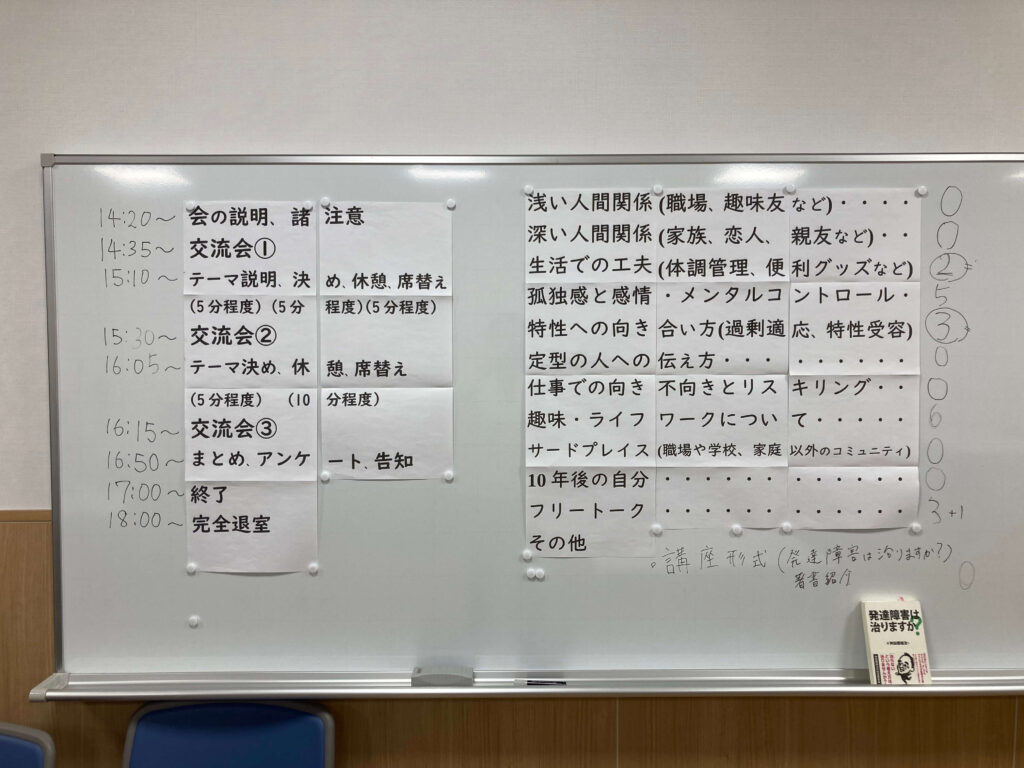 14:20～ 会の説明、諸注意
14:35～ 交流会①
15:10～ テーマ説明、決め、休憩、席替え
(5分程度)(5分程度)(5分程度)
15:30～ 交流会②
16:05～ テーマ決め、休憩、席替え
(5分程度) (10分程度)
16:15～ 交流会③
16:50～ まとめ、アンケート、告知
17:00～ 終了
18:00～ 完全退室
浅い人間関係(職場、趣味友など)・・・・ 0
深い人間関係(家族、恋人、親友など)・・ 0
生活での工夫(体調管理、便利グッズなど) 2
孤独感と感情・メンタルコントロール・ 5
特性への向き合い方(過剰適応、特性受容) 3
定型の人への伝え方・・・・・・・・・ 0
仕事での向き不向きとリスキリング・・ 0
趣味・ライフワークについて・・・・・ 6
サードプレイス(職場や学校、家庭以外のコミュニティ) 0
10年後の自分・・・・・・・・・・・・ 0
フリートーク・・・・・・・・・・・・ 3+1
その他
・講座形式(発達障害は治りますか?) 0
著書紹介
発達障害は
治りますか?